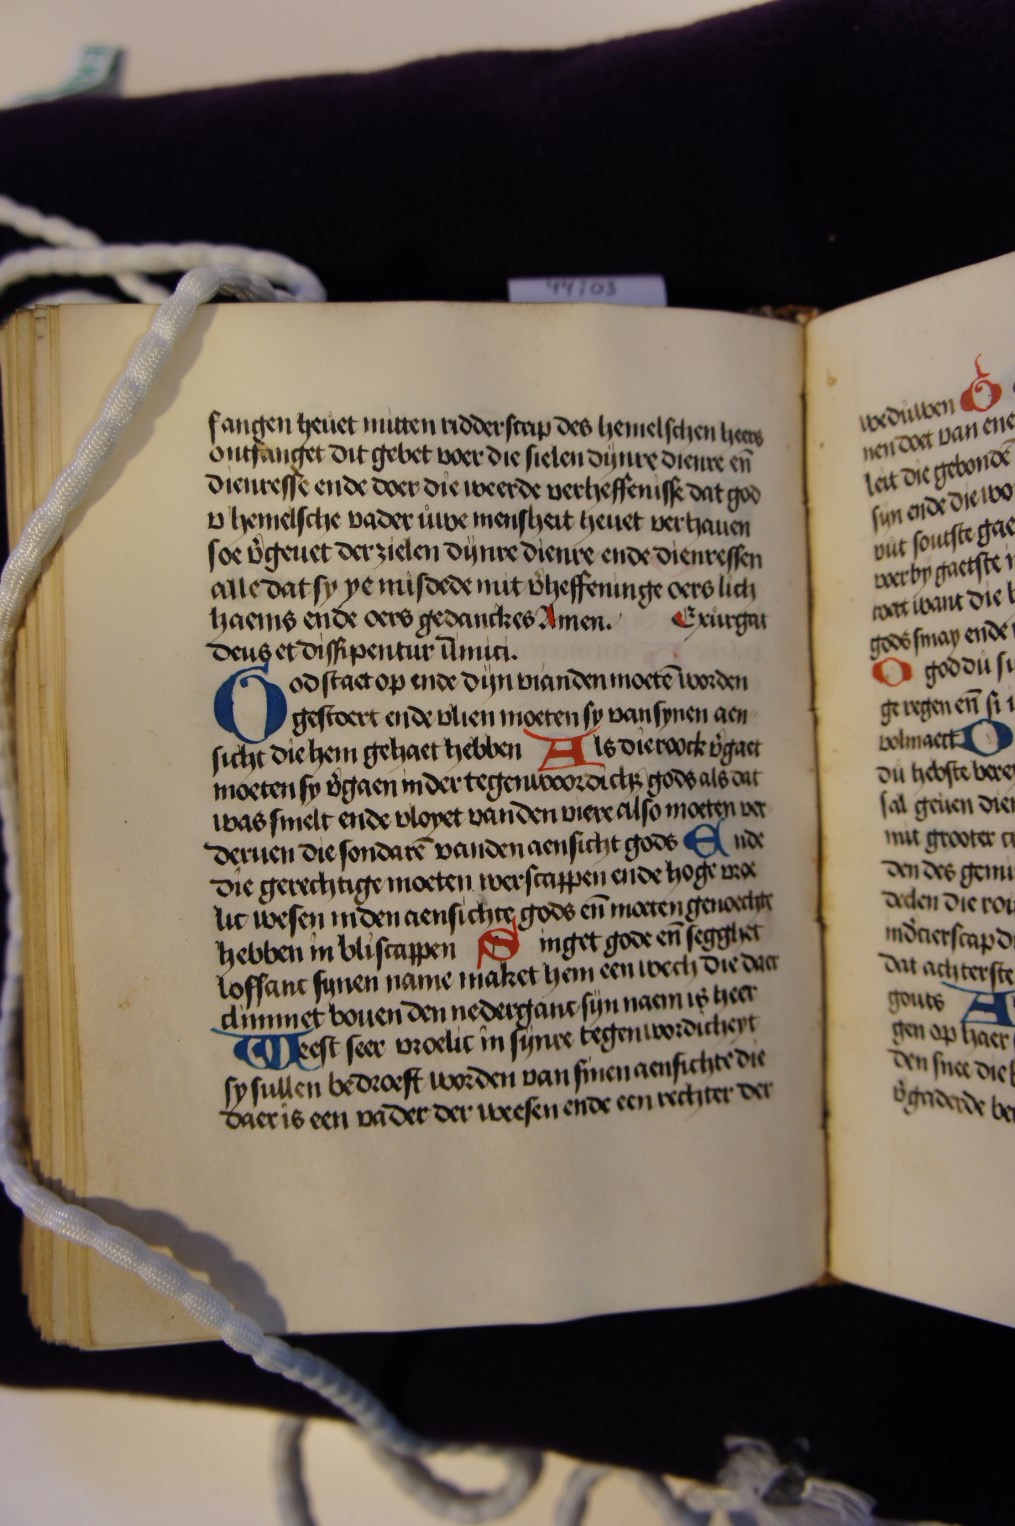 44703
fangen heuet mitten ridderscap des hemelschen heers
ontfanget dit gebet voer die sielen dijnre dienre en̄
dienresse ende doer die weerde verheffenisse dat god
v hemelsche vader uwe mensheit heuet verhauen
soe v̄geuet der zielen dijnre dienre ende dienressen
alle dat sy ye misdede mit v̄heffeninge oers lich
haems ende oers gedanckes Amen. Exurgat
deus et dissipentur inimici.
God staet op ende dijn vianden moetē worden
gestoert ende vlien moeten sy van synen aen
sicht die hem gehaet hebben Als die roock v̄gaet
moeten sy v̄gaen in der tegenwoordich; gods als dat
was smelt ende vloyet van den viere also moeten ver
deruen die sondarē vanden aensicht gods Ende
die gerechtige moeten werscappen ende hoge vroe
lic wesen in den aensichte gods en̄ moeten genoechte
hebben in bliscappen Singet gode en̄ segghet
loffanc synen name maket hem een wech die daer
climmet bouen den nederganc sijn naem is heer
Weest seer vroelic in synre tegenwordicheyt
sy sullen bedroeft worden van sinen aensichte die
daer is een vader der weesen ende een rechter der
weduwen O
nen doet van ene
leit die gebondē
sijn ende die wo
uut soutste gae
voerby gaetste i
want die
gods smay ende
O god du
ge regen en̄ si
volmaect O
du hebste bere
sal geuen dien
mit grooter
den des gemi
deden die
dat achterste
A
gen op haer
den snee die
v̄gaderde be